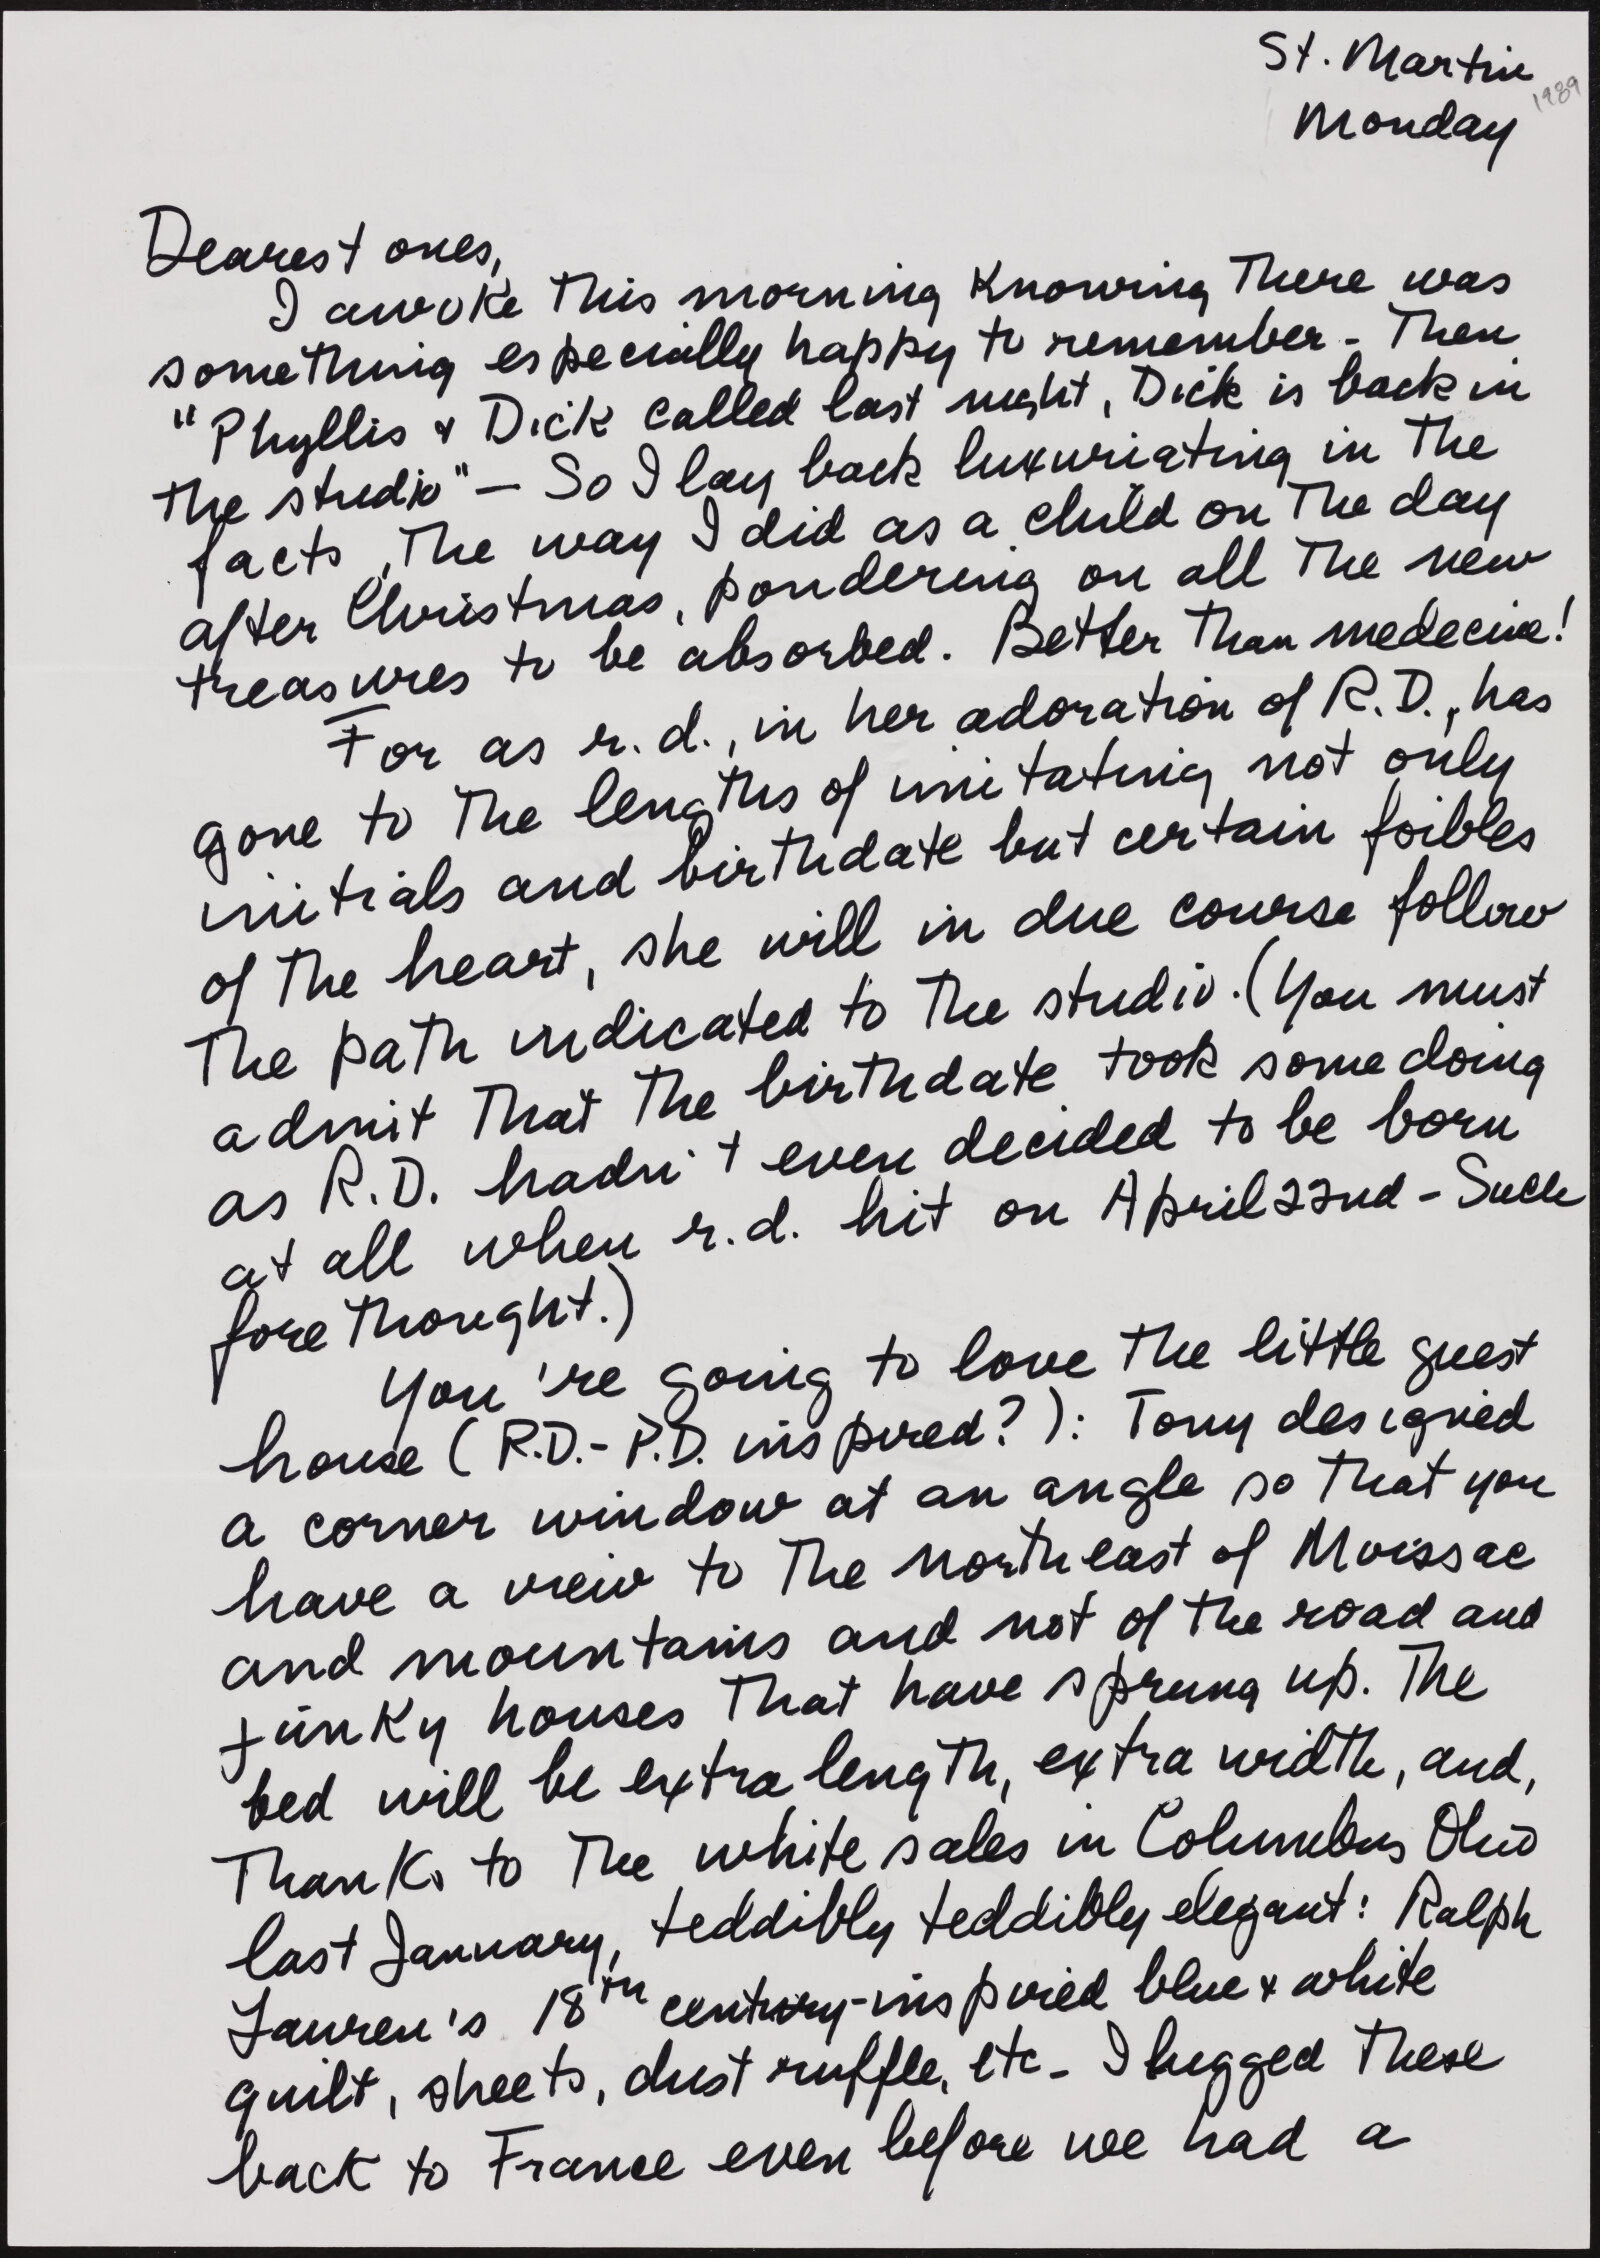 St. Martin
1989
Monday
Dearest ones,
I awoke this morning knowing there was
something especially happy to remember - Then
"Phyllis & Dick called last night, Dick is back in
the studio" — So I lay back luxuriating in the
facts, the way I did as a child on the day
after Christmas, pondering on all the new
treasures to be absorbed. Better than medecine!
For as r.d., in her adoration of R.D., has
gone to the lengths of imitating not only
initials and birthdate but certain foibles
of the heart, she will in due course follow
the path indicated to the studio. (You must
admit that the birthdate took some doing
as R.D. hadn't even decided to be born
at all when r.d. hit on April 22nd - Such
forethought.)
You're going to love the little guest
house (R.D.- P.D. inspired?): Tony designed
a corner window at an angle so that you
have a view to the northeast of Moissac
and mountains and not of the road and
junky houses that have sprung up. The
bed will be extra length, extra width, and,
thanks to the white sales in Columbus Ohio
last January, teddibly teddibly elegant: Ralph
Lauren's 18th century-inspired blue & white
quilt, sheets, dust ruffle, etc - I lugged these
back to France even before we had a